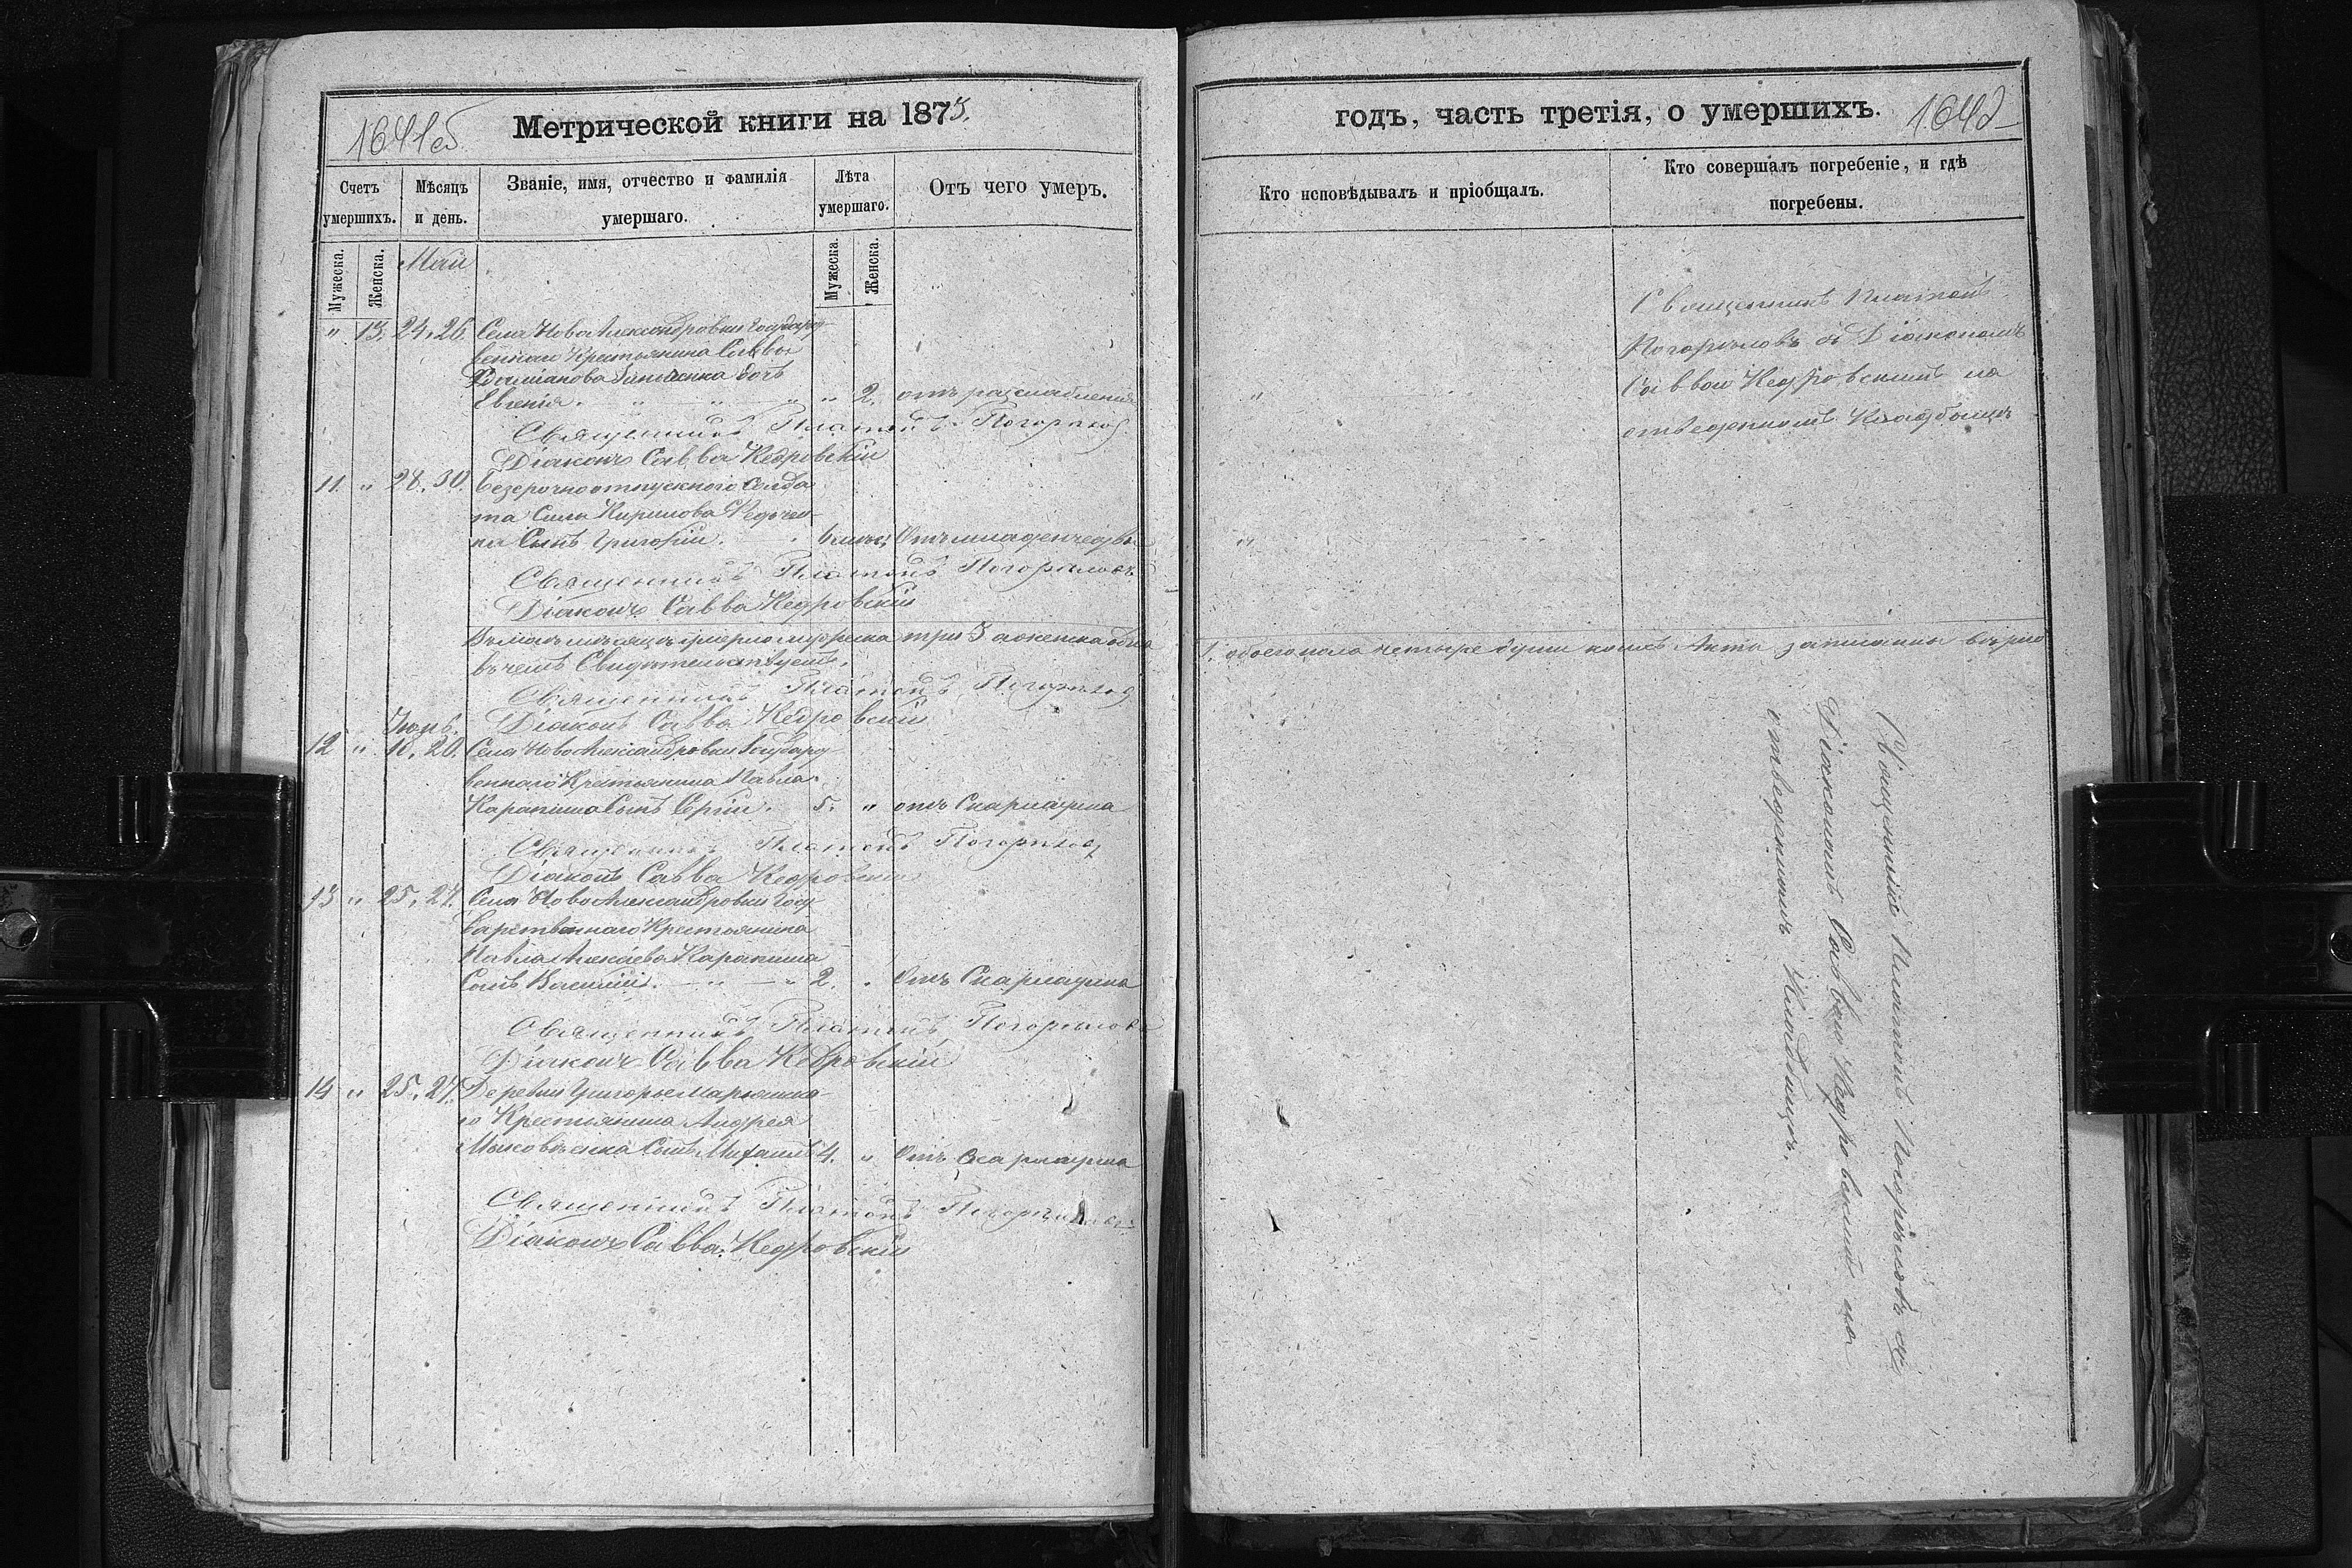 Метрической книги на 1875.
Счетъ умершихъ.
Мѣсяцъ и день.
Званіе, имя, отчество и фамилія умершаго.
Лѣта умершаго.
Отъ чего умеръ.
Мужеска.
Женска.
Мужеска.
Женска.
Май
" 13. 24. 26. Села НовоАлександровки Государ
веннаго Крестьянина Саввы
дочь
Евгенія. " " " " 2. отъ разслабленія
Священникъ Платонъ Погорѣлов
Діаконъ Савва Кедровскій
11. " 28. 30. Безсрочноотпускного Солда
та Силы Кирилова
ки Сынъ Григорій. 6 мѣсяц Отъ младенческой
Священникъ Платонъ Погорѣловъ
Діаконъ Савва Кедровскій
Въ маѣ мѣсяцѣ умерло мужеска три 3 а женска одна
въ чемъ Свидѣтельствуетъ.
Священникъ Платонъ Погорѣлов
Діаконъ Савва Кедровскій
Іюнь.
12 " 18. 20. Села НовоАлександровки Государ
веннаго Крестьянина Павла
Карапиша Сынъ Сергій. 5. " отъ Скарлатина
Священникъ Платонъ Погорѣлов
Діаконъ Савва Кедровскій
13 " 25. 27. Села НовоАлександровки Госу
дарственнаго Крестьянина
Павла Алексѣева Карапиша
Сынъ Василій. " " 2. " Отъ Скарлатина
Священникъ Платонъ Погорѣловъ
Діаконъ Савва Кедровскій
14 " 25. 27. Деревни
го Крестьянина Андрея
Сынъ Михаилъ 4. " Отъ Скарлатина
Священникъ Платонъ Погорѣловъ
Діаконъ Савва Кедровскій
годъ, часть третія, о умершихъ. 1642
Кто исповѣдывалъ и пріобщалъ.
Кто совершалъ погребеніе, и гдѣ погребены.
Священникъ Платонъ
Погорѣловъ съ Діакономъ
Саввою Кедровскимъ на
отведенномъ Кладбищѣ
"
"
1. обоего пола четыре души коихъ Акты записаны вѣрно
Священникъ Платонъ Погорѣловъ съ
Діакономъ Саввою Кедровскимъ на
отведенномъ Кладбищѣ.